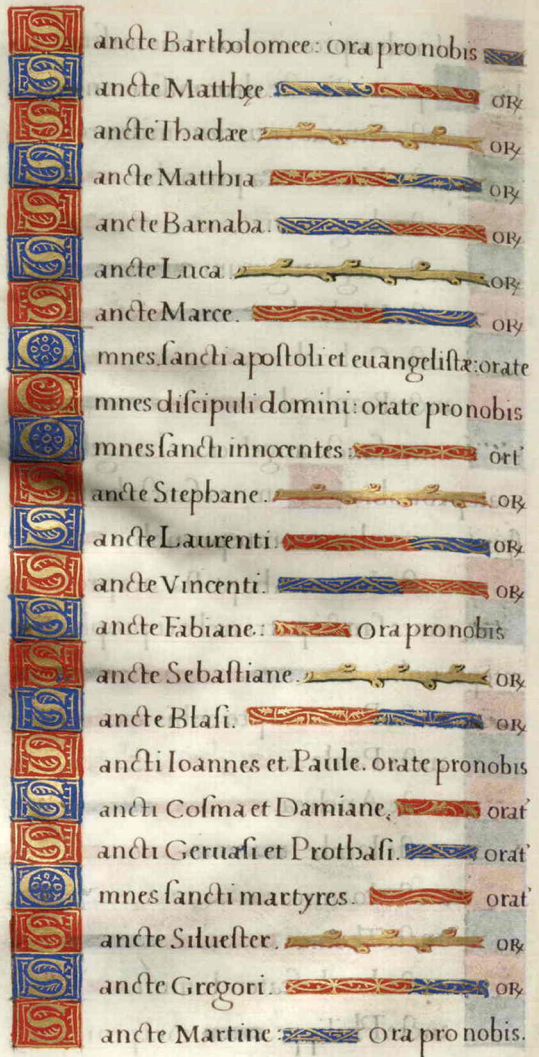 Sancte Bartholomee: Ora pro nobis
Sancte Matthęe OR℞
Sancte Thadæe OR℞
Sancte Matthia OR℞
Sancte Barnaba. OR℞
Sancte Luca. OR℞
Sancte Marce. OR℞
Omnes ſancti apoſtoli et euangeliſtæ: orate
Omnes diſcipuli domini: orate pro nobis
Omnes ſancti innocentes: ort'
Sancte Stephane. OR℞
Sancte Laurenti OR℞
Sancte Vincenti. OR℞
Sancte Fabiane: Ora pro nobis
Sancte Sebaſtiane. OR℞
Sancte Blaſi. OR℞
Sancti Ioannes et Paule. orate pro nobis
Sancti Coſma et Damiane, orat'
Sancti Geruaſi et Prothaſi. orat'
Omnes ſancti martyres. orat'
Sancte Silueſter. OR℞
Sancte Gregori. OR℞
Sancte Martine: Ora pro nobis.